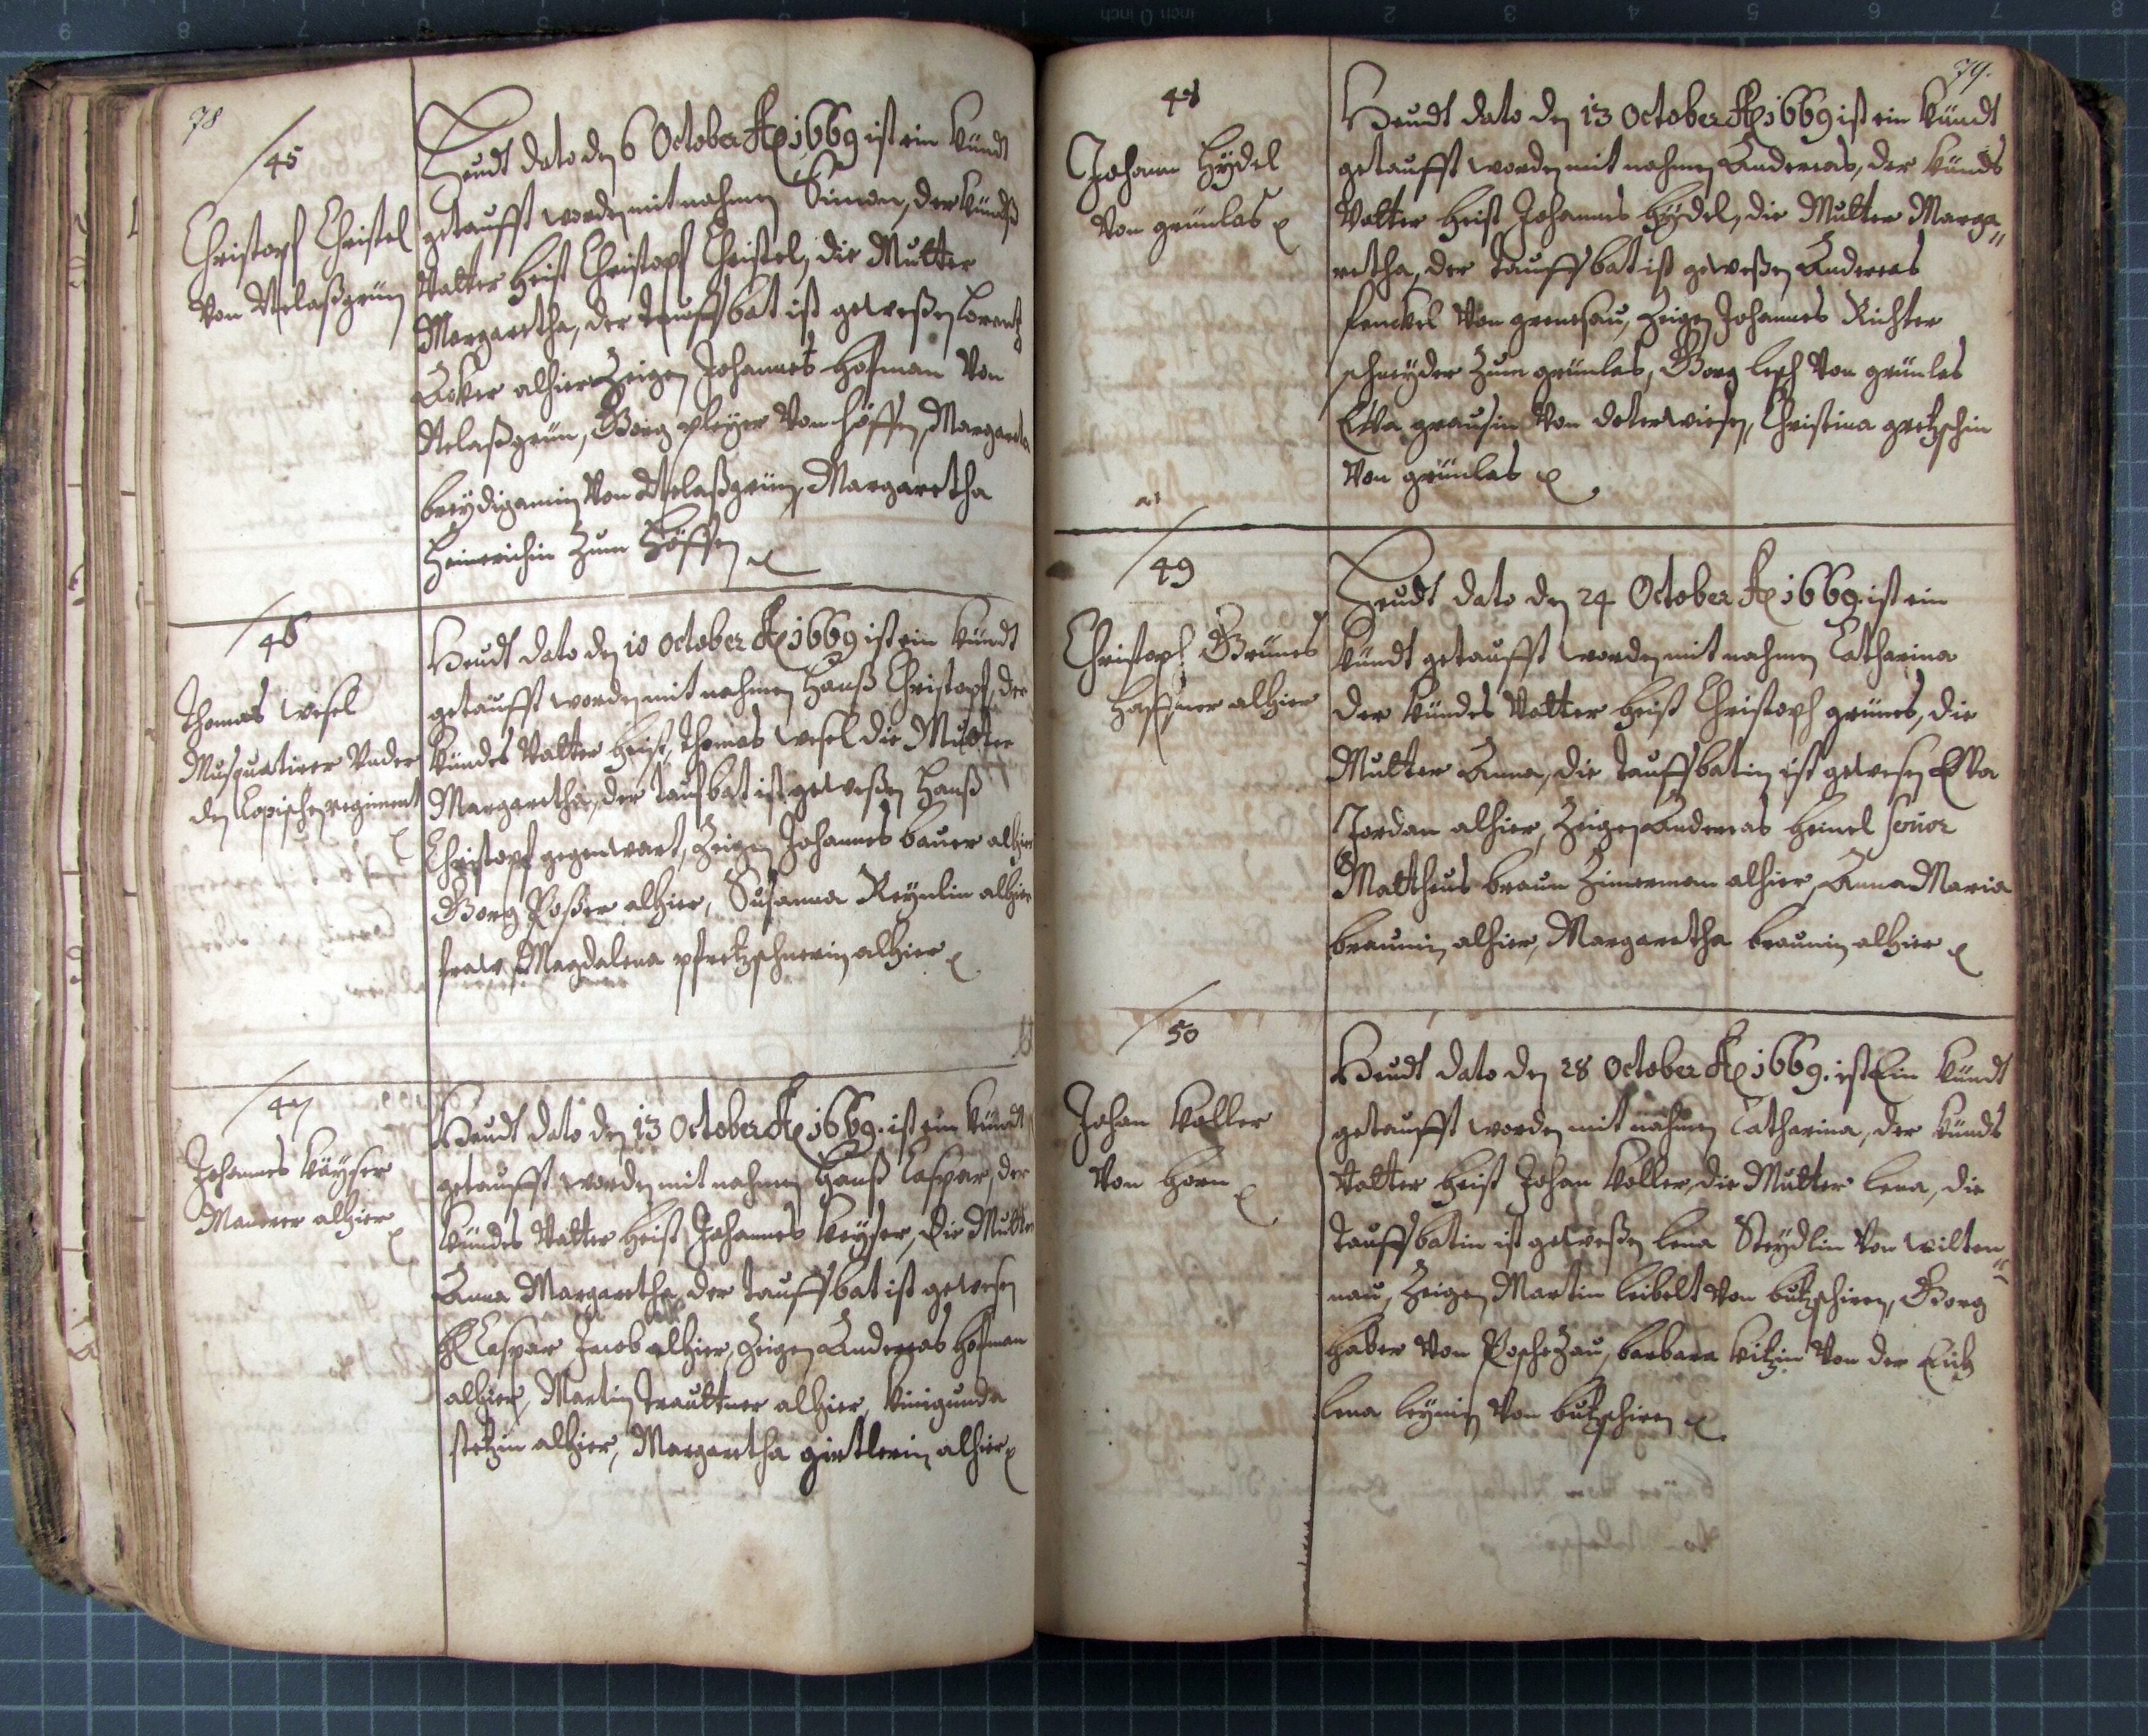 78
45
Christoph Christel
Von Nelaßgrün
Heudt dato den 6 October Ao 1669 ist ein Kündt
getaufft worden mit nahmen Simon, der Kündß
Vatter heist Christoph Christel, die Mutter
Margaretha, der Tauffbat ist geweßen Lorentz
Acker alhier Zeigen Johannes Hofman Von
Nelaßgrün, Görg pleyer Von höffen, Margareta
breydigamin Von Nelaßgrün, Margaretha
Heinrichin Zum Höffen
46
Thomas Wesel
Musquetirer Vnder
den Copischen regiment
Heudt dato den 10 October Ao 1669 ist ein Kündt
getaufft worden mit nahmen Hanß Christoph, der
Kündes Vatter heist, Thomas Wesel die Mutter
Margaretha, der Taufbat ist geweßen Hanß
Christoph gegenwart, Zeigen Johannes bauer alhier
Görg Poßer alhier, Susanna Reynlin alhier
fraw Magdalena pfretzschnerin alhier
47
Johannes Käyser
Maurer alhier
Heudt dato den 13 October Ao 1669. ist ein Kündt
getaufft worden mit nahmen Hanß Caspar, der
Kündes Vatter heist Johannes Keyser, die Mutter
Anna Margaretha, der Tauffbat ist gewesen
H Caspar Jacob alhier, Zeigen Andreas Hofman
alhier, Martin Traultner alhier, Kunigunda
stehin alhier, Margaretha girtlerin alhier
79.
48
Johann Heydel
Von grünlas
Heudt dato den 13 October Ao 1669 ist ein Kündt
getaufft worden mit nahmen Andereas, der Künds
Vatter heist Johannes Heydel, die Mutter Marga
retha, der Tauffbat ist geweßen Andereas
fenckel Von grenesau, Zeigen Johannes Richter
schneyder Zum grünlas, Görg lesch Von grünlas
Eva grausin Von doterwiesen, Christina gretzschin
Von grünlas
49
Christoph Grünes
Haffner alhier
Heudt dato den 24 October Ao 1669. ist ein
Kündt getaufft worden mit nahmen Catharina
der Kündes Vatter heist Christoph grünes, die
Mutter Anna, die Tauffbatin ist gewesen Eva
Jordan alhier, Zeigen Andereas Heinel
Mattheus braun Zimerman alhier, Anna Maria
braunin alhier, Margaretha braunin alhier
50
Johan Koller
Von Horn
Heudt dato den 28 October Ao 1669. ist Ein Kündt
getaufft worden mit nahmen Catharina, der Künds
Vatter heist Johan Koller, die Mutter lena, die
Tauffbatin ist geweßen lena Steydlin Von wilten
nau, Zeigen Martin leibelt Von butzschiren, Görg
haber Von Poschezau, barbara Kitzin Von der Eich
lena leynin Von butzschiren